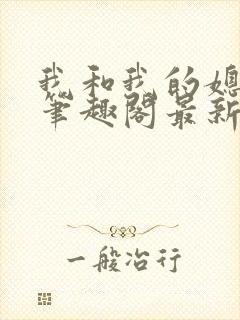 我和我的媳
笔趣阁最新
一般冶行